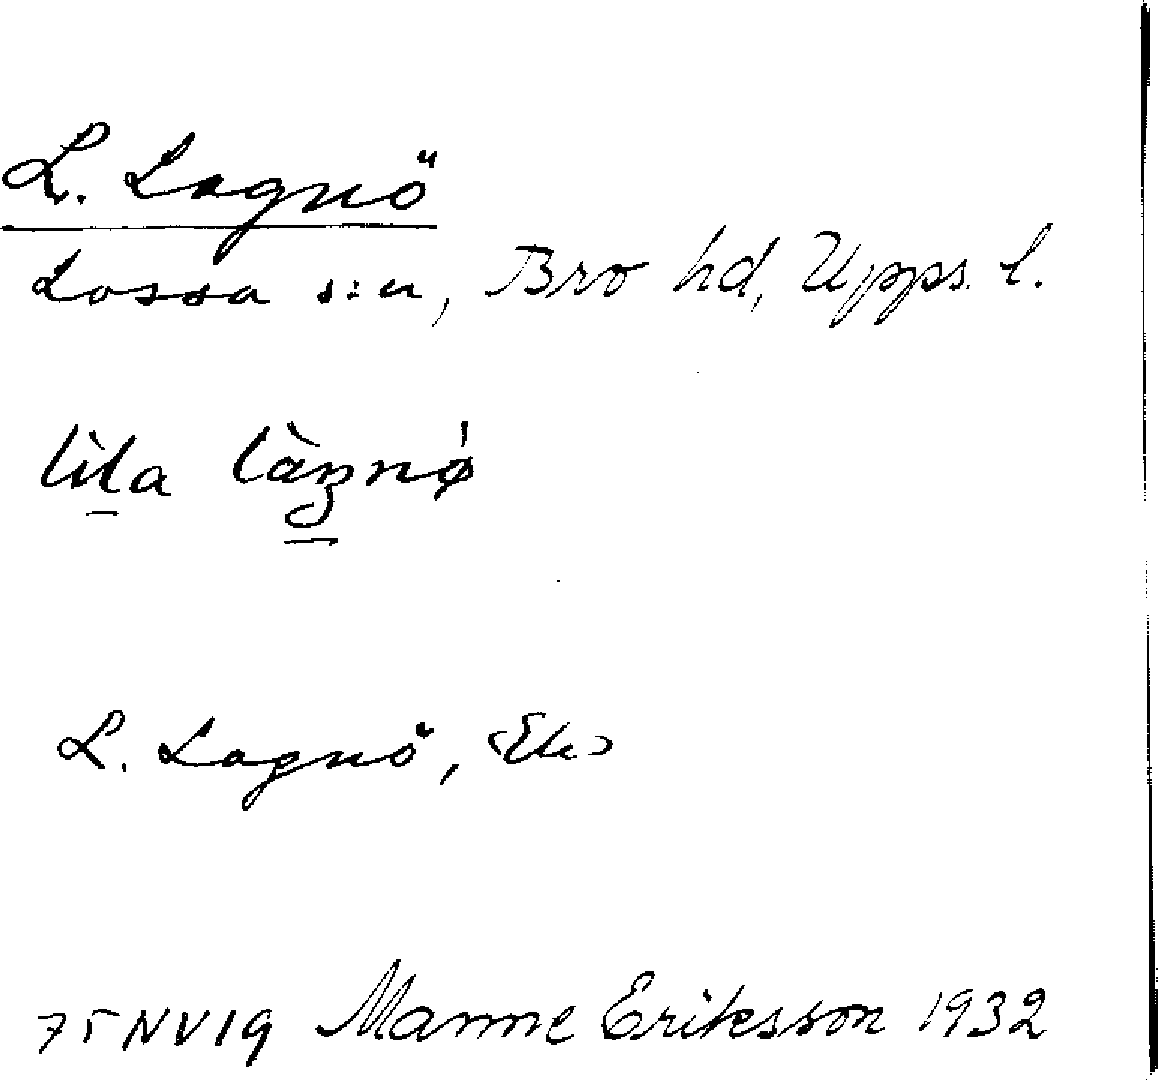 L. Lagnö
Lossa s:n, Bro hd, Upps. l.
lìla làgnø̍
L. Lagnö, <Ek>
75 NV 19 Manne Eriksson 1932